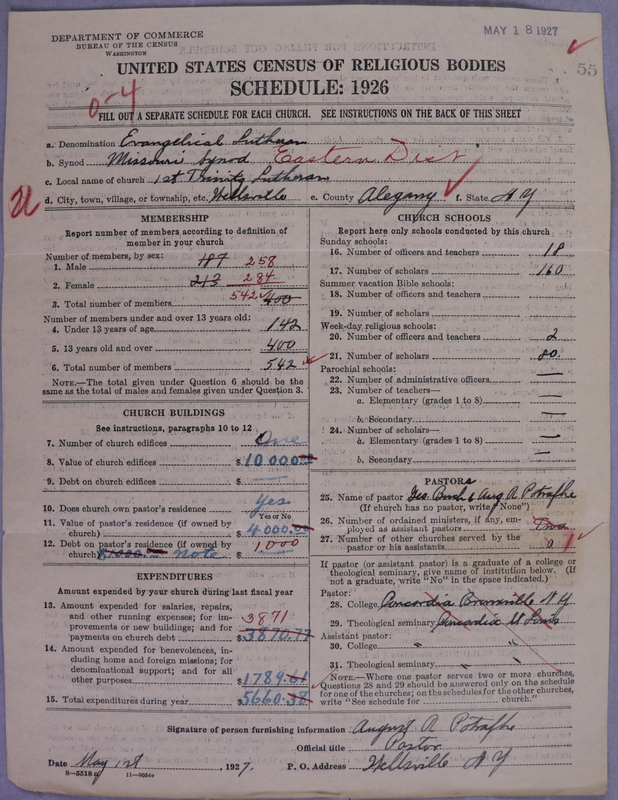 MAY 18 1927
DEPARTMENT OF COMMERCE
BUREAU OF THE CENSUS
WASHINGTON
55
UNITED STATES CENSUS OF RELIGIOUS BODIES
SCHEDULE: 1926
0-4
FILL OUT A SEPARATE SCHEDULE FOR EACH CHURCH. SEE INSTRUCTIONS ON THE BACK OF THIS SHEET
a. Denomination Evangelical Lutheran
b. Synod Missouri Synod Eastern Dist
c. Local name of church 1st Trinity Lutheran
d. City, town, village, or township, etc. Wellsville e. County Alegany f. State N Y
MEMBERSHIP
Report number of members according to definition of
member in your church
Number of members, by sex:
1. Male 187 258
2. Female 213 284
3. Total number of members 542 400
Number of members under and over 13 years old:
4. Under 13 years of age 142
5. 13 years old and over 400
6. Total number of members 542
NOTE.—The total given under Question 6 should be the
same as the total of males and females given under Question 3.
CHURCH BUILDINGS
See instructions, paragraphs 10 to 12
7. Number of church edifices One
8. Value of church edifices $ 10000.00
9. Debt on church edifices $ —
10. Does church own pastor's residence Yes
Yes or No
11. Value of pastor's residence (if owned by
church) $ 4000.00
12. Debt on pastor's residence (if owned by
church) $1000.00 Note 1,000
EXPENDITURES
Amount expended by your church during last fiscal year
13. Amount expended for salaries, repairs,
and other running expenses; for im-
provements or new buildings; and for
payments on church debt 3871 $ 3870.77
14. Amount expended for benevolences,
including home and foreign missions; for
denominational support; and for all
other purposes $ 1789.61
15. Total expenditures during year $ 5660.38
CHURCH SCHOOLS
Report here only schools conducted by this church
Sunday schools:
16. Number of officers and teachers 18
17. Number of scholars 160
Summer vacation Bible schools:
18. Number of officers and teachers —
19. Number of scholars —
Week-day religious schools:
20. Number of officers and teachers 2
21. Number of scholars 20
Parochial schools:
22. Number of administrative officers —
23. Number of teachers—
a. Elementary (grades 1 to 8) —
b. Secondary —
24. Number of scholars—
a. Elementary (grades 1 to 8) —
b. Secondary —
PASTORS
25. Name of pastor Geo. Buch & Aug. R Potrafke
(If church has no pastor, write "None")
26. Number of ordained ministers, if any, em-
ployed as assistant pastors Two
27. Number of other churches served by the
pastor or his assistants 0 1
If pastor (or assistant pastor) is a graduate of a college or
theological seminary, give name of institution below. (If
not a graduate, write "No" in the space indicated.)
Pastor:
28. College Concordia Bronxville N Y
29. Theological seminary Concordia St Louis
Assistant pastor:
30. College " "
31. Theological seminary " "
NOTE.—Where one pastor serves two or more churches,
Questions 28 and 29 should be answered only on the schedule
for one of the churches; on the schedules for the other churches,
write "See schedule for church."
Signature of person furnishing information August R Potrafke
Official title Pastor
Date May 1st, 1927. P. O. Address Wellsville N Y
8-5318 11-9054